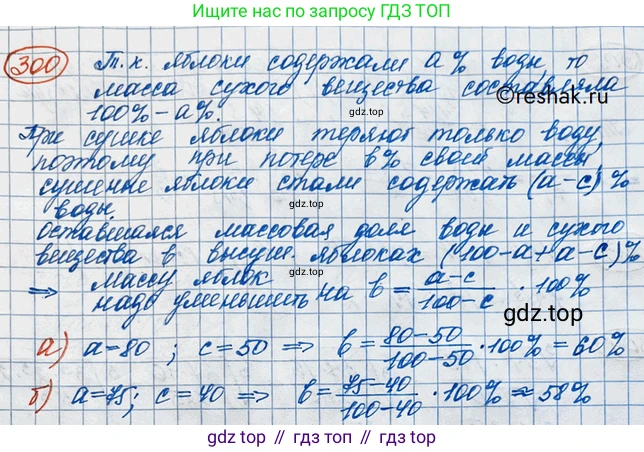 Больше решебников по запросу ГДЗ ТОП
300 Т.к. яблоки содержали a% воды то
масса сухого вещества составляла
100% - a%.
©reshak.ru
При сушке яблоки теряют только воду,
поэтому при потере b% своей массы
сушеные яблоки стали содержать (a-c)%
воды.
Оставшаяся массовая доля воды и сухого
вещества в высуш. яблоках (100-a+a-c)%
⇒ массу яблок
надо уменьшить на b = a-c / 100-c · 100%
а) a=80 ; c=50 ⇒ b = 80-50 / 100-50 · 100% = 60%
б) a=75; c=40 ⇒ b = 75-40 / 100-40 · 100% ≈ 58%
gdz.top
gdz.top
gdz.top
gdz.top
gdz.top // гдз.топ // gdz.top // гдз.топ // gdz.top